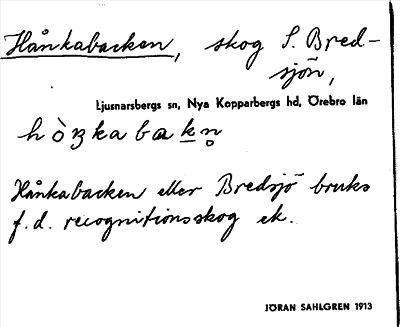 Hånkabacken, skog S. Bred-
sjön,
Ljusnarsbergs sn, Nya Kopparbergs hd, Örebro län
Hånkabacken eller Bredsjö bruks
f.d. recognitionsskog ek.
JÖRAN SAHLGREN 1913